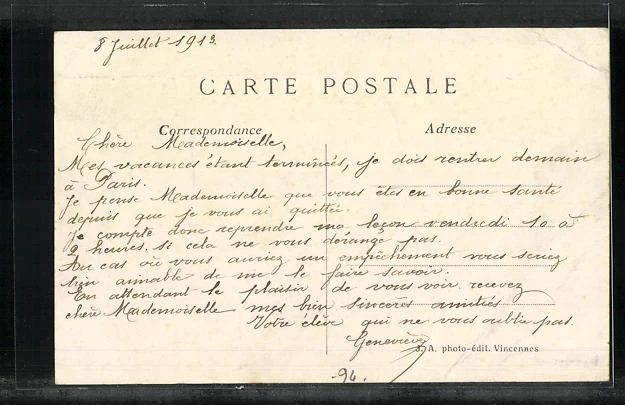 8 Juillet 1913.
CARTE POSTALE
Correspondance
Adresse
Chère Mademoiselle,
Mes vacances étant terminées, je dois rentrer demain
à Paris.
Je pense Mademoiselle que vous êtes en bonne santé
depuis que je vous ai quittée.
Je compte donc reprendre ma leçon vendredi 10 à
2 heures, si cela ne vous dérange pas.
Au cas où vous auriez un empêchement vous seriez
bien aimable de me le faire savoir.
En attendant le plaisir de vous voir recevez
chère Mademoiselle mes bien sincères amitiés
Votre élève qui ne vous oublie pas.
Geneviève
A. photo-édit. Vincennes
-94.